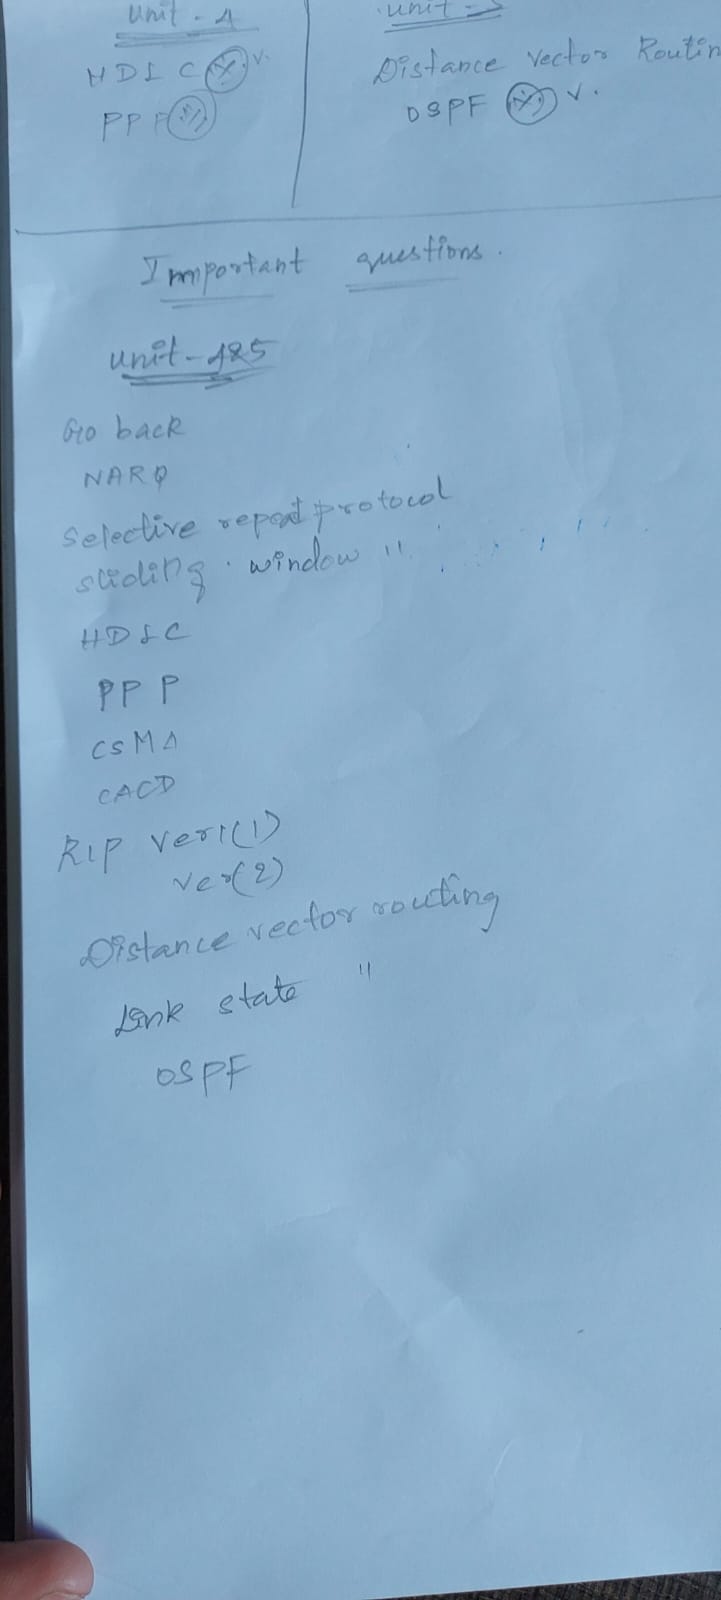 unit - 4
HDLC v.
PPP
unit - 5
Distance vector Routin
OSPF v.
Important questions.
unit - 4&5
Go back
NARQ
selective repeat protocol
sliding window "
HDLC
PPP
CSMA
CACD
RIP ver1(1)
ver(2)
Distance vector routing
Link state "
OSPF